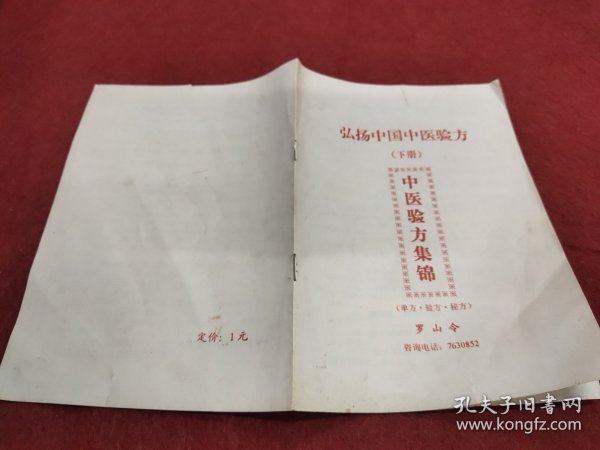 弘扬中国中医验方
(下册)
中医验方集锦
(单方·验方·秘方)
罗山令
咨询电话：7630852
定价：1元
孔夫子旧书网
www.kongfz.com